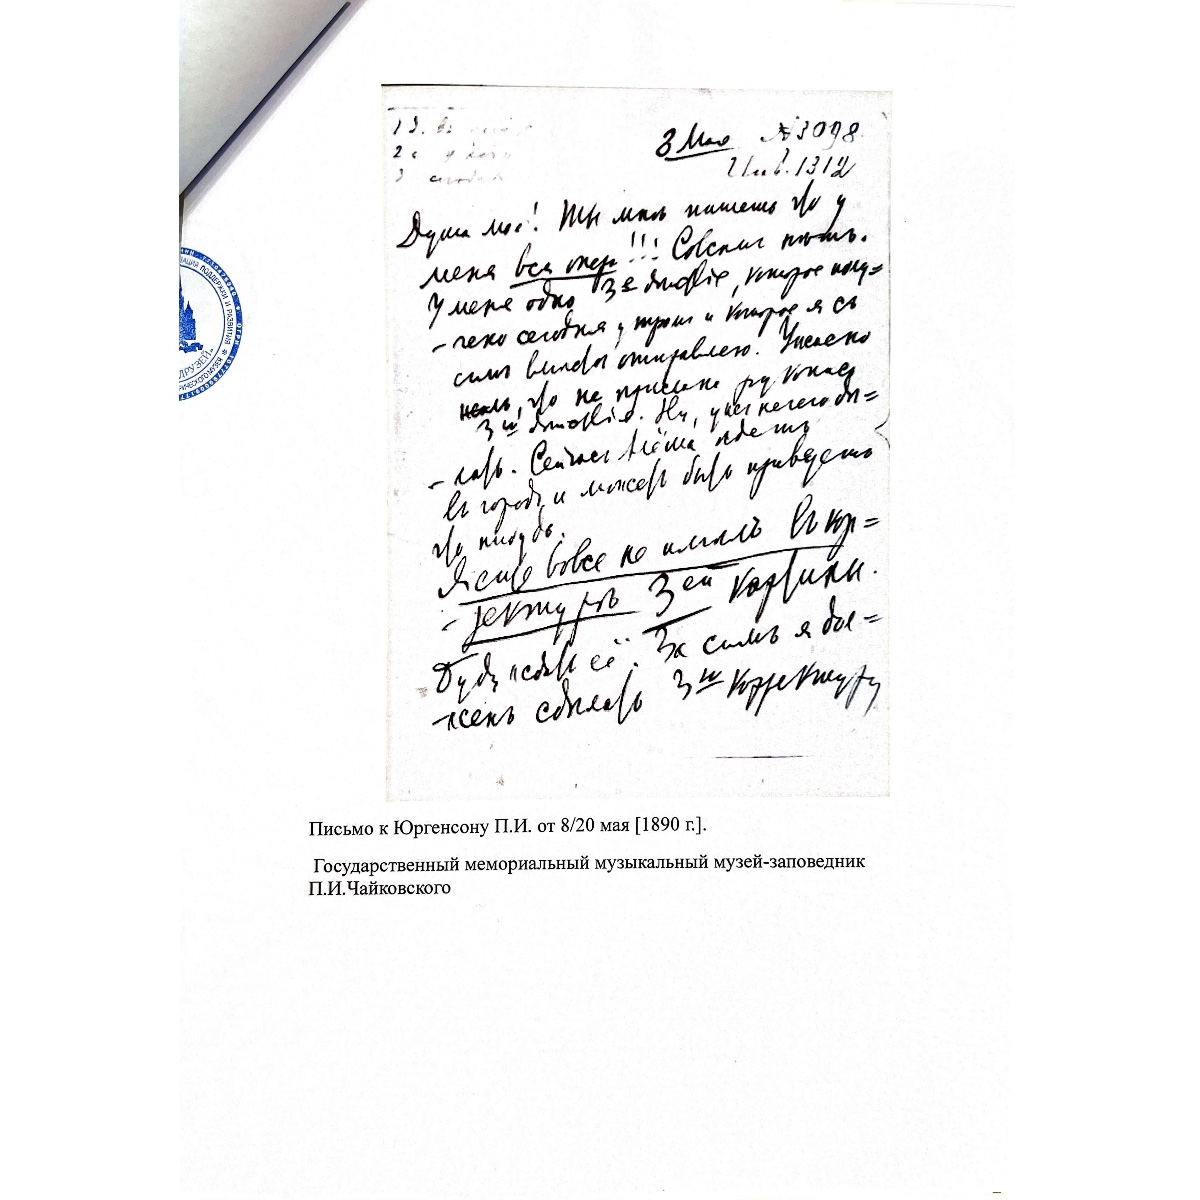 8 Мая №3098
Инв. 1312
Душа моя! Ты мнѣ пишешь что у
меня вся опера!!! Совсѣмъ нѣтъ.
У меня одно 3е дѣйствіе, которое полу=
-чено сегодня утромъ и которое я съ
симъ вмѣстѣ отправляю. Ужасно
жаль, что не прислана рукопись
3го дѣйствія. Ну, ужъ нечего дѣ=
-лать. Сейчасъ Алёша ѣдетъ
въ городъ и можетъ быть привезетъ
что нибудь.
Я еще вовсе не имѣлъ въ кор=
-ректурѣ 3ей картины.
Буду ждать её. За симъ я дол=
-женъ сдѣлать 3ю корректуру
Письмо к Юргенсону П.И. от 8/20 мая [1890 г.].
Государственный мемориальный музыкальный музей-заповедник
П.И.Чайковского
ПОДДЕРЖКИ И РАЗВИТИЯ
ДРУЗЕЙ»